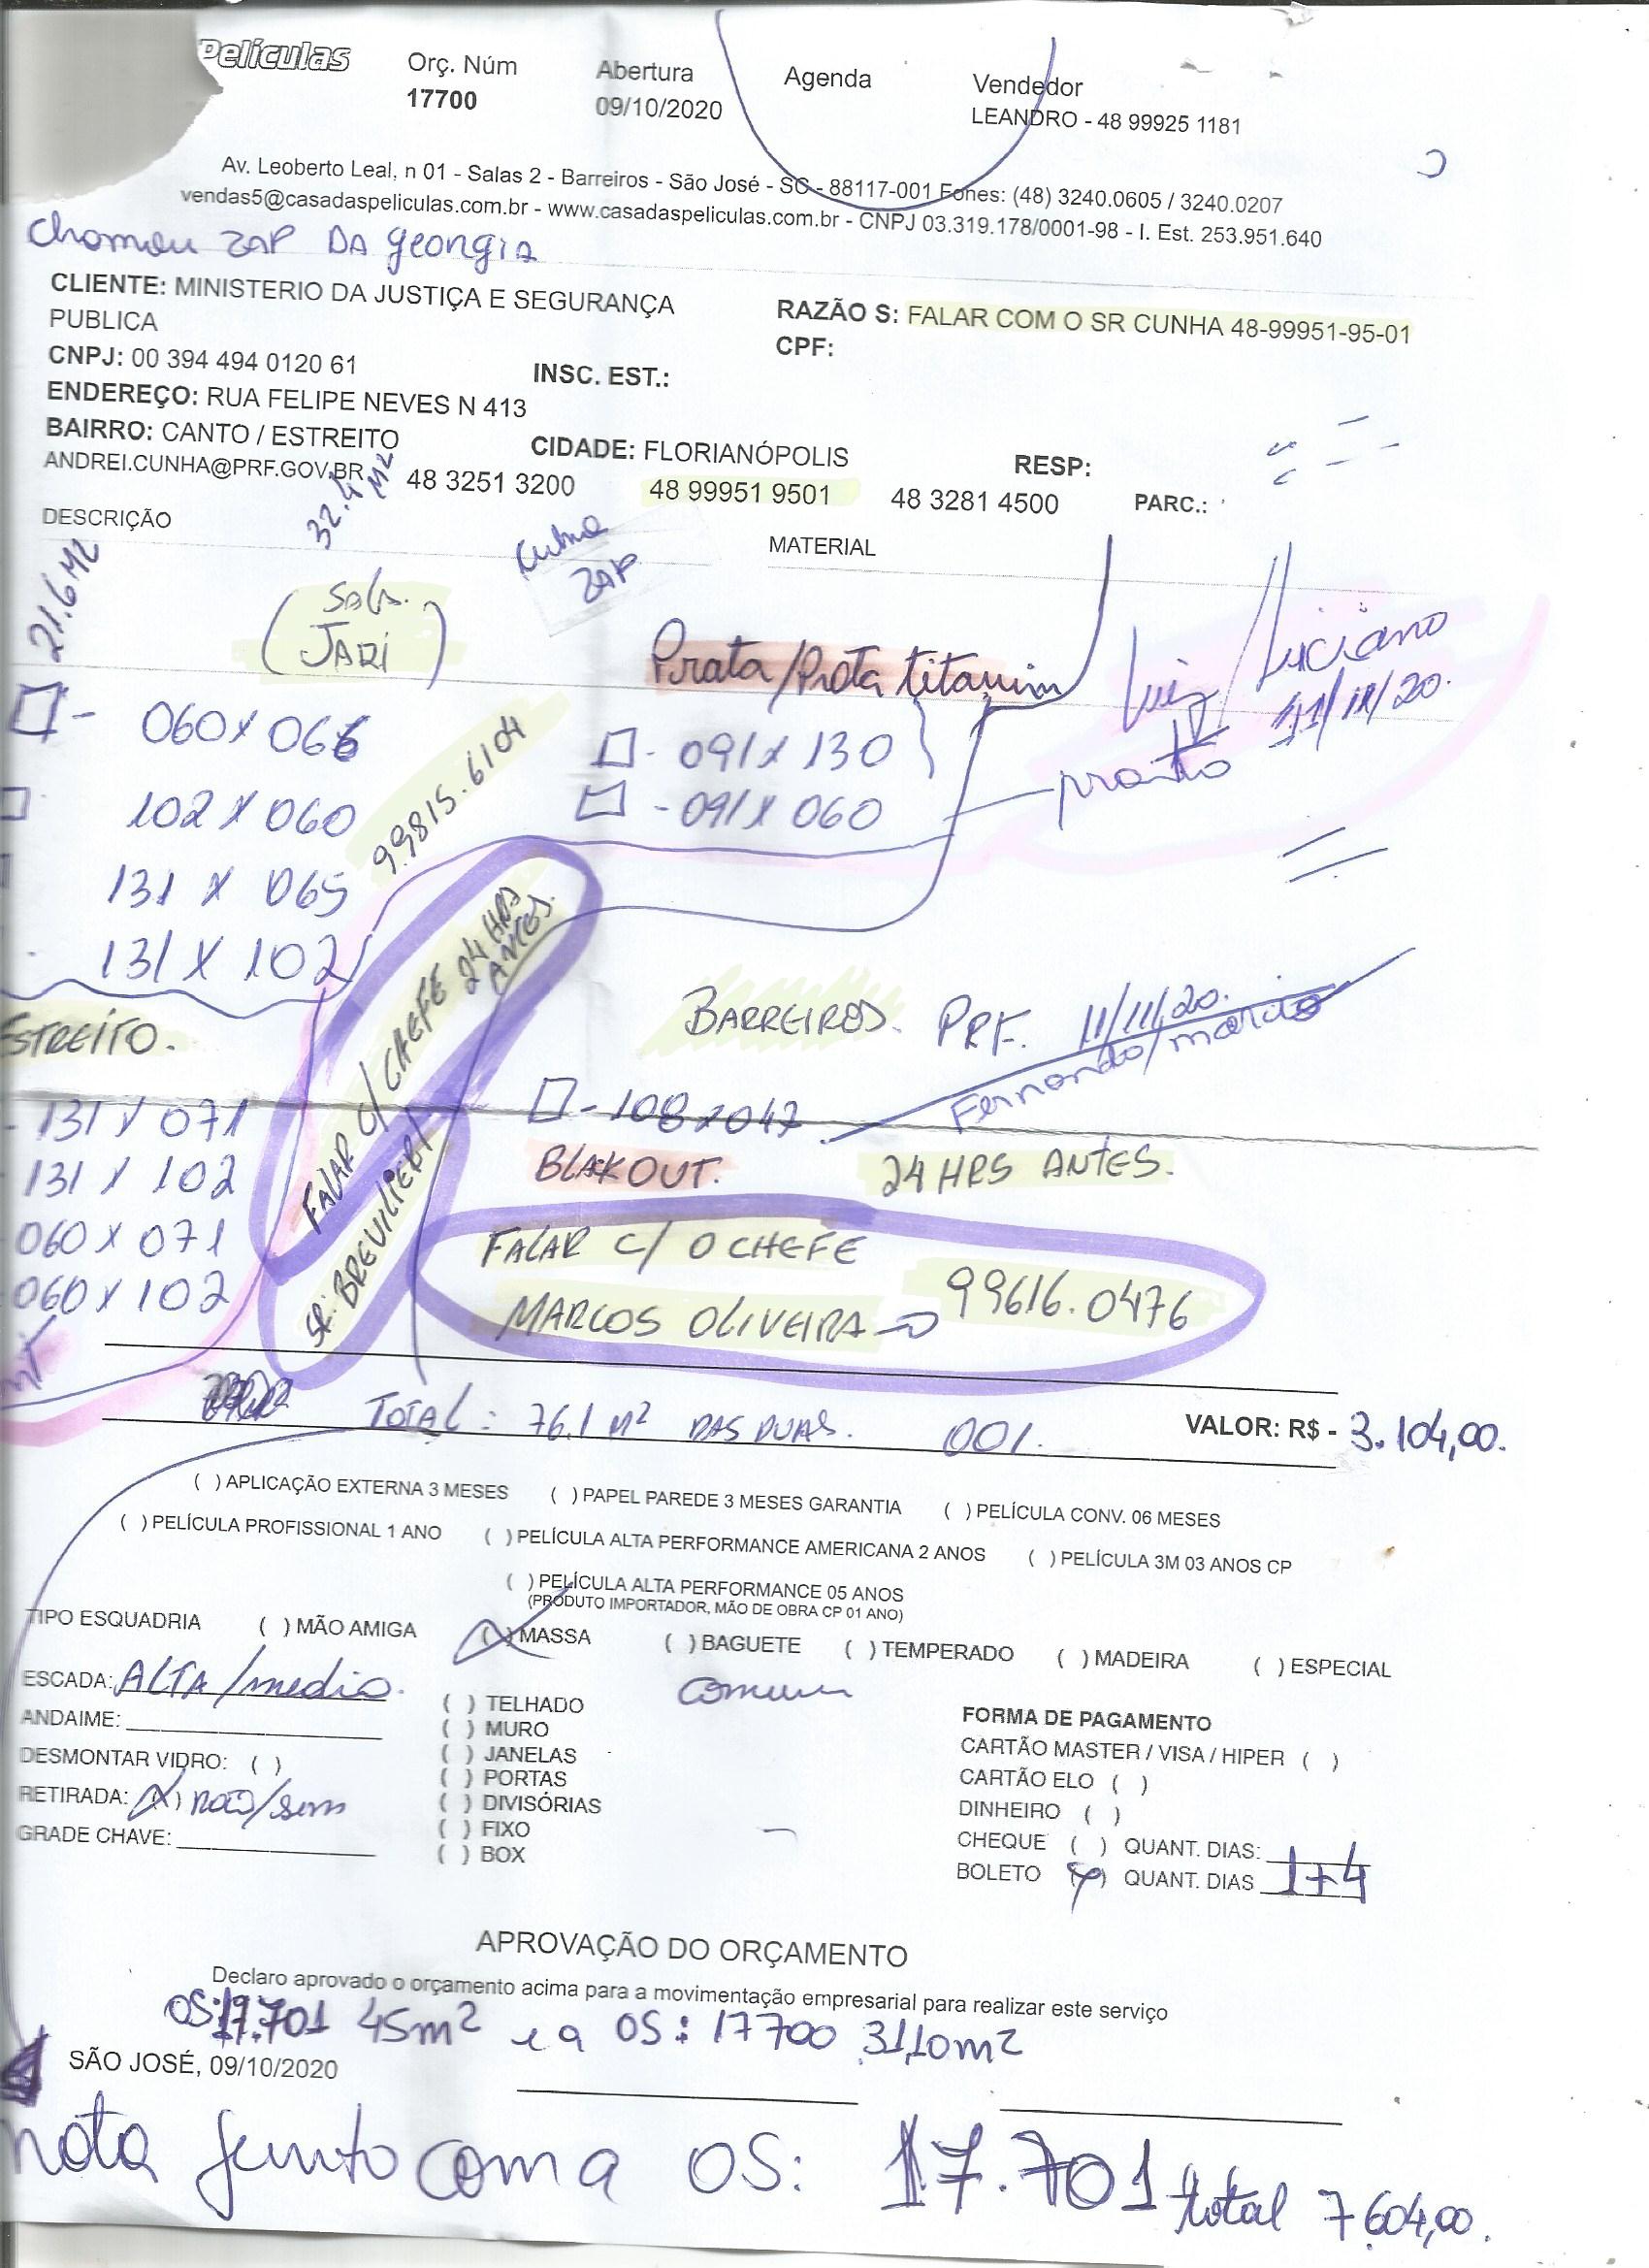 Películas
Orç. Núm Abertura Agenda Vendedor
17700 09/10/2020 LEANDRO - 48 99925 1181
Av. Leoberto Leal, n 01 - Salas 2 - Barreiros - São José - SC - 88117-001 Fones: (48) 3240.0605 / 3240.0207
vendas5@casadaspeliculas.com.br - www.casadaspeliculas.com.br - CNPJ 03.319.178/0001-98 - I. Est. 253.951.640
ZAP DA georgia
CLIENTE: MINISTERIO DA JUSTIÇA E SEGURANÇA
PUBLICA
RAZÃO S: FALAR COM O SR CUNHA 48-99951-95-01
CPF:
CNPJ: 00 394 494 0120 61 INSC. EST.:
ENDEREÇO: RUA FELIPE NEVES N 413
BAIRRO: CANTO / ESTREITO CIDADE: FLORIANÓPOLIS RESP:
ANDREI.CUNHA@PRF.GOV.BR 48 3251 3200 48 99951 9501 48 3281 4500 PARC.:
DESCRIÇÃO MATERIAL
32.4 M2
21.6 M2
Cunha ZAP
(Sala. JARI)
Prata/Prata titanium
Luiz/Luciano
11/11/20.
pronto
060 x 066
102 x 060
131 x 065
131 x 102
- 091 x 130
- 091 x 060
99815.6104
FALAR C/ CHEFE 24 HRS ANTES.
SR: BREVILIERI
ESTREITO.
- 131 x 071
131 x 102
060 x 071
060 x 102
BARREIROS. PRF. 11/11/20.
Fernando/marcio
- 108 x 047
BLAKOUT. 24 HRS ANTES.
FALAR C/ O CHEFE
MARCOS OLIVEIRA → 99616.0476
TOTAL: 76.1 M² DAS DUAS. 001. VALOR: R$ - 3.104,00.
( ) APLICAÇÃO EXTERNA 3 MESES ( ) PAPEL PAREDE 3 MESES GARANTIA ( ) PELÍCULA CONV. 06 MESES
( ) PELÍCULA PROFISSIONAL 1 ANO ( ) PELÍCULA ALTA PERFORMANCE AMERICANA 2 ANOS ( ) PELÍCULA 3M 03 ANOS CP
( ) PELÍCULA ALTA PERFORMANCE 05 ANOS
(PRODUTO IMPORTADOR, MÃO DE OBRA CP 01 ANO)
TIPO ESQUADRIA ( ) MÃO AMIGA (X) MASSA ( ) BAGUETE ( ) TEMPERADO ( ) MADEIRA ( ) ESPECIAL
comum
ESCADA: ALTA/media.
ANDAIME:
DESMONTAR VIDRO: ( )
RETIRADA: (X) não/sem
GRADE CHAVE:
( ) TELHADO
( ) MURO
( ) JANELAS
( ) PORTAS
( ) DIVISÓRIAS
( ) FIXO
( ) BOX
FORMA DE PAGAMENTO
CARTÃO MASTER / VISA / HIPER ( )
CARTÃO ELO ( )
DINHEIRO ( )
CHEQUE ( ) QUANT. DIAS:
BOLETO (X) QUANT. DIAS 1+4
APROVAÇÃO DO ORÇAMENTO
Declaro aprovado o orçamento acima para a movimentação empresarial para realizar este serviço
OS:17.701 45m² e a OS: 17700 31,10m2
SÃO JOSÉ, 09/10/2020
nota junto com a OS: 17.701 total 7604,00.